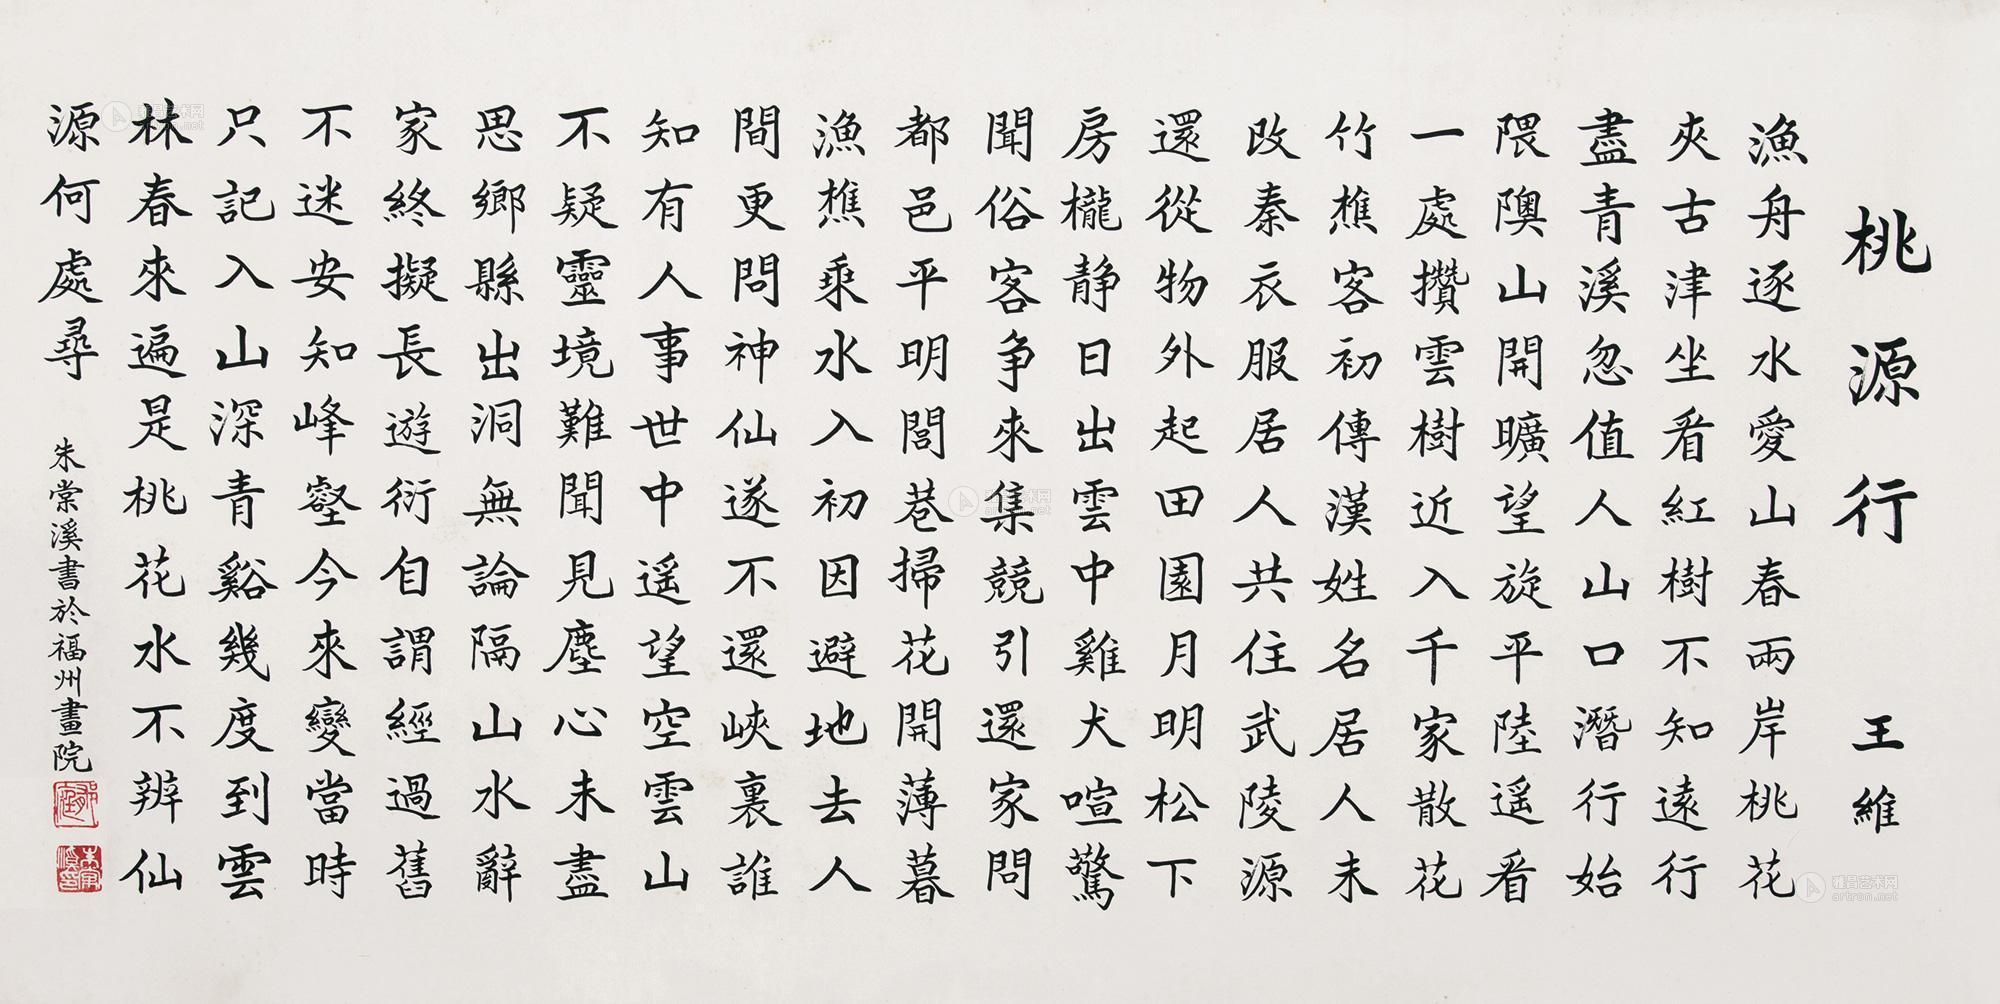 桃源行 王維
漁舟逐水愛山春兩岸桃花
夾古津坐看紅樹不知遠行
盡青溪忽值人山口潛行始
隈隩山開曠望旋平陸遥看
一處攢雲樹近入千家散花
竹樵客初傳漢姓名居人未
改秦衣服居人共住武陵源
還從物外起田園月明松下
房櫳静日出雲中雞犬喧驚
聞俗客争來集競引還家問
都邑平明閭巷掃花開薄暮
漁樵乘水入初因避地去人
間更問神仙遂不還峽裏誰
知有人事世中遥望空雲山
不疑靈境難聞見塵心未盡
思鄉縣出洞無論隔山水辭
家終擬長遊衍自謂經過舊
不迷安知峰壑今來變當時
只記入山深青谿幾度到雲
林春來遍是桃花水不辨仙
源何處尋
朱棠溪書於福州畫院
雅昌艺术网
artron.net
雅昌艺术网
artron.net
雅昌艺术网
artron.net